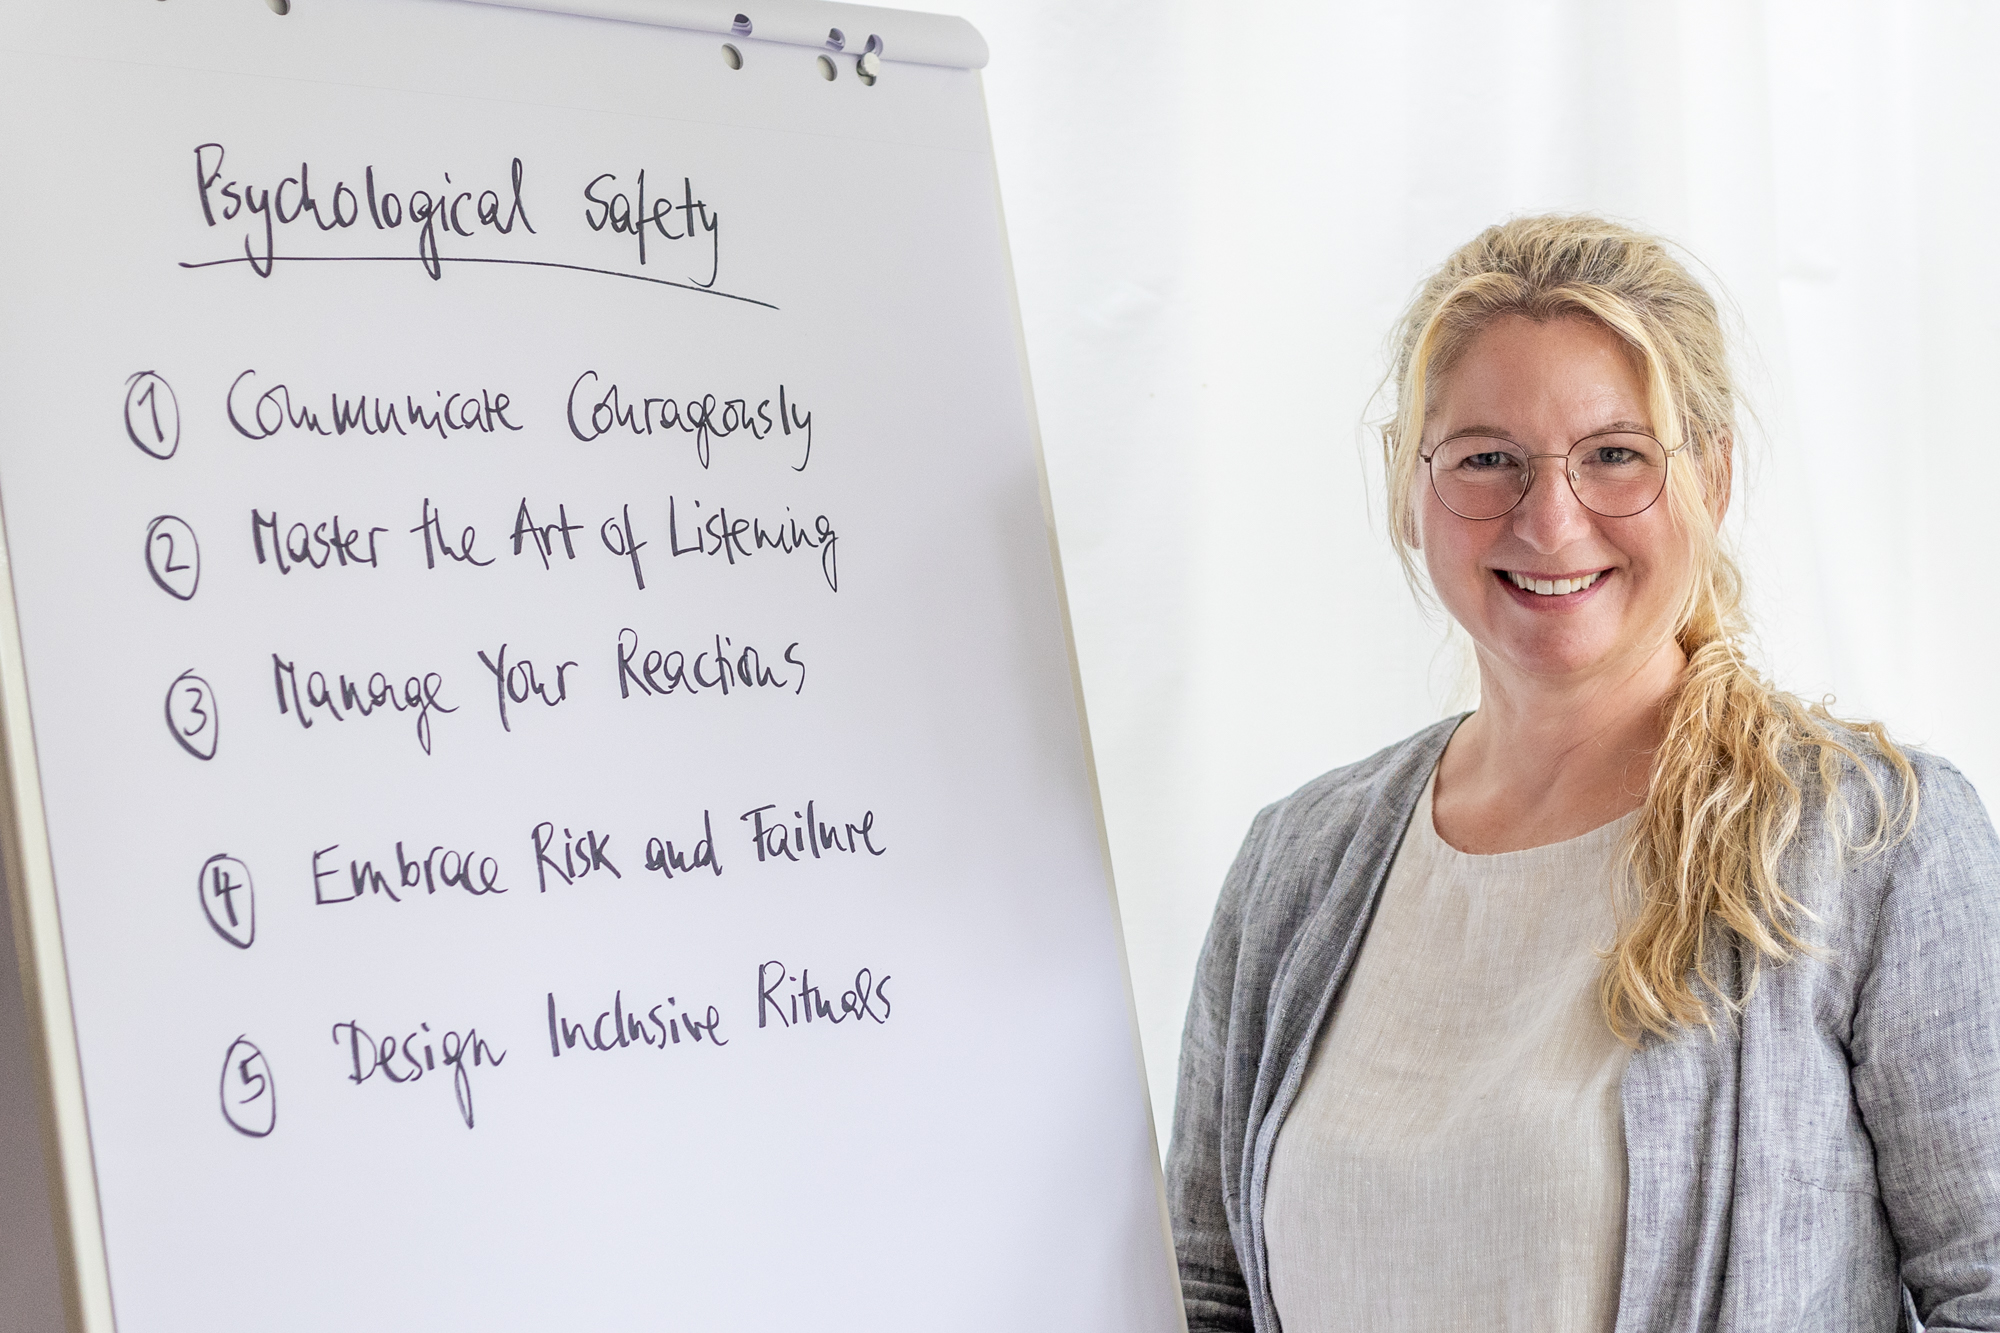 Psychological Safety
1 Communicate Courageously
2 Master the Art of Listening
3 Manage Your Reactions
4 Embrace Risk and Failure
5 Design Inclusive Rituals